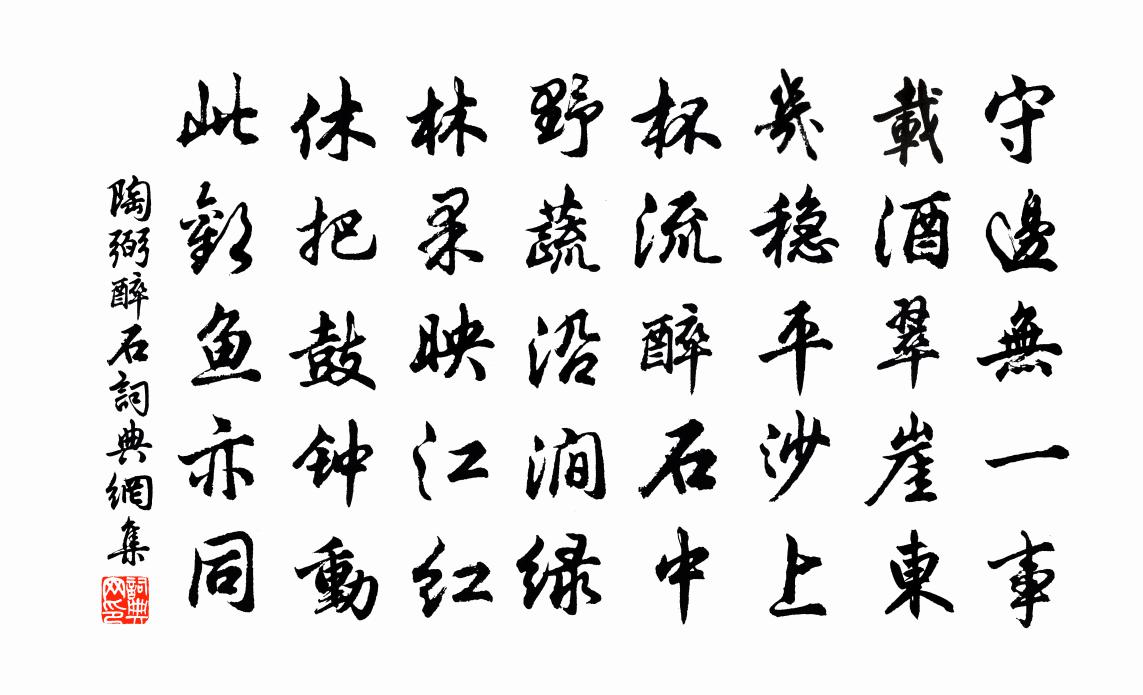 守邊無一事
載酒翠崖東
幾穏平沙上
杯流醉石中
野蔬沿澗緑
林果映江紅
休把鼓钟動
此歡鱼亦同
陶弼醉石詞典網集
詞典网印